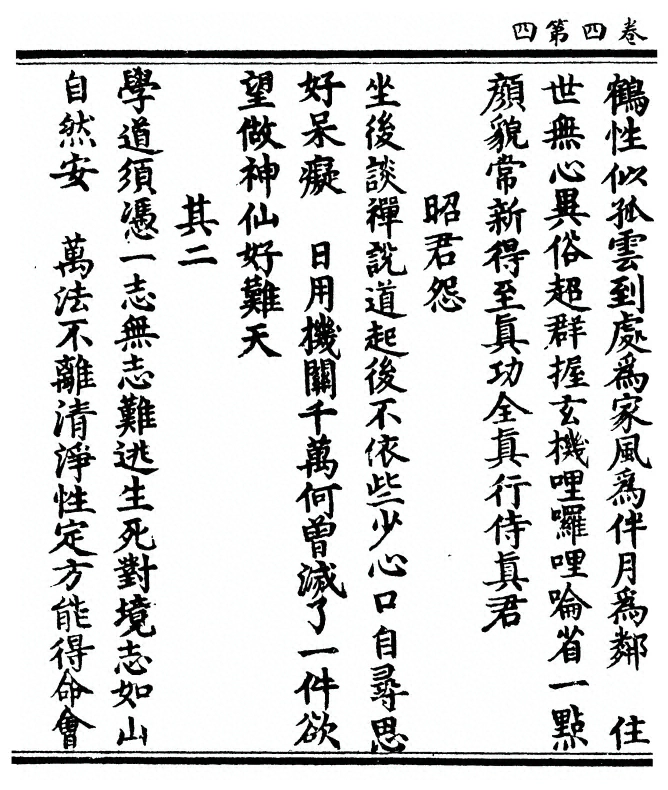 卷四第四
鶴性似孤雲到處爲家風爲伴月爲鄰　住
世無心異俗超群握玄機哩囉哩㖮省一點
顏貌常新得至真功全真行侍真君
昭君怨
坐後談禪說道起後不依些少心口自尋思
好呆癡　日用機關千萬何曾滅了一件欲
望做神仙好難天
其二
學道須憑一志無志難逃生死對境志如山
自然安　萬法不離清淨性定方能得命會